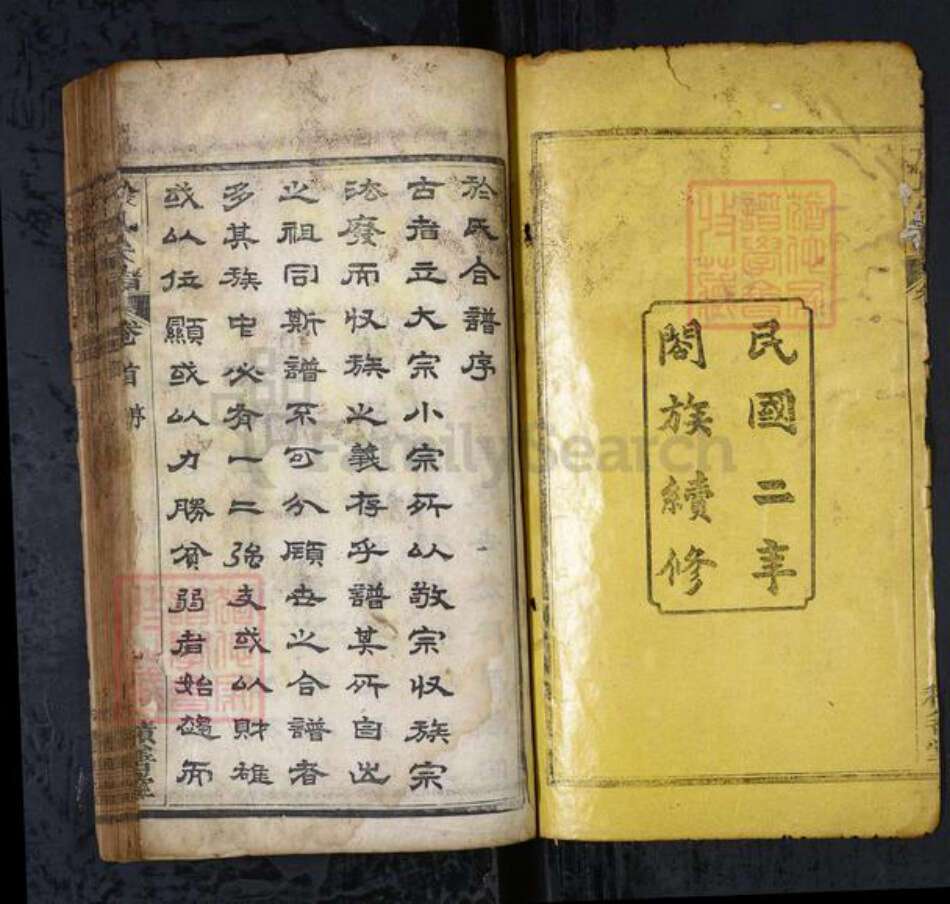 民國二年
閤族續修
於氏合譜序
古者立大宗小宗所以敬宗收族宗
法廢而收族之義存乎譜其所自出
之祖同斯譜不可分顧世之合譜者
多其族中必有一二強支或以財雄
或以位顯或以力勝貧弱者始礎而
卷首
FamilySearch